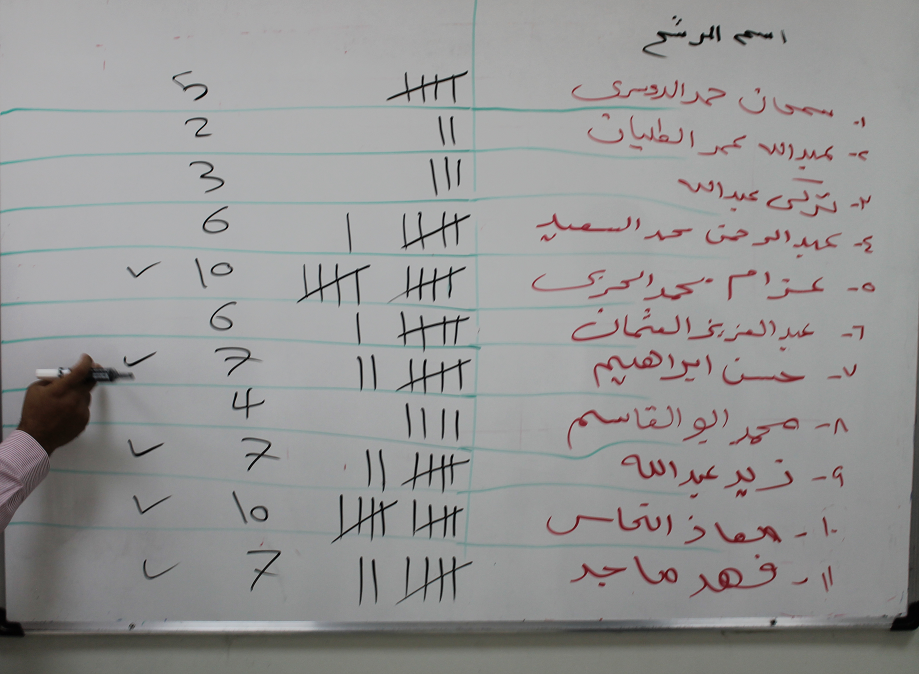 اسم المرشح
١- سمحان حمد الدوسري 5
٢- عبدالله عمر الطليان 2
٣- تركي عبدالله 3
٤- عبدالرحمن محمد السعيد 6
٥- عزام محمد الحربي 10 ✓
٦- عبدالعزيز العثمان 6
٧- حسن ابراهيم 7 ✓
٨- محمد ابو القاسم 4
٩- زيد عبدالله 7 ✓
١٠- معاذ النحاس 10 ✓
١١- فهد ماجد 7 ✓